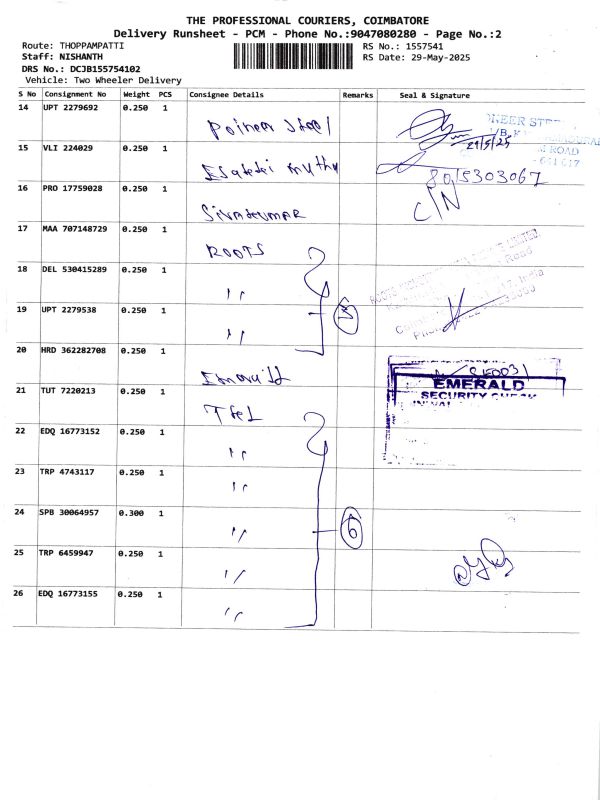 THE PROFESSIONAL COURIERS, COIMBATORE
Delivery Runsheet - PCM - Phone No.:9047080280 - Page No.:2
Route: THOPPAMPATTI
RS No.: 1557541
Staff: NISHANTH
RS Date: 29-May-2025
DRS No.: DCJB155754102
Vehicle: Two Wheeler Delivery
S No Consignment No Weight PCS Consignee Details Remarks Seal & Signature
14 UPT 2279692 0.250 1
29/5/25
ROAD
15 VLI 224029 0.250 1
8015303067
16 PRO 17759028 0.250 1 SIVAKUMAR C/N
17 MAA 707148729 0.250 1 ROOTS
18 DEL 530415289 0.250 1 "
19 UPT 2279538 0.250 1 " 3
20 HRD 362282708 0.250 1
EMERALD
SECURITY CHECK
21 TUT 7220213 0.250 1
22 EDQ 16773152 0.250 1 "
23 TRP 4743117 0.250 1 "
24 SPB 30064957 0.300 1 " 6
25 TRP 6459947 0.250 1 "
26 EDQ 16773155 0.250 1 "